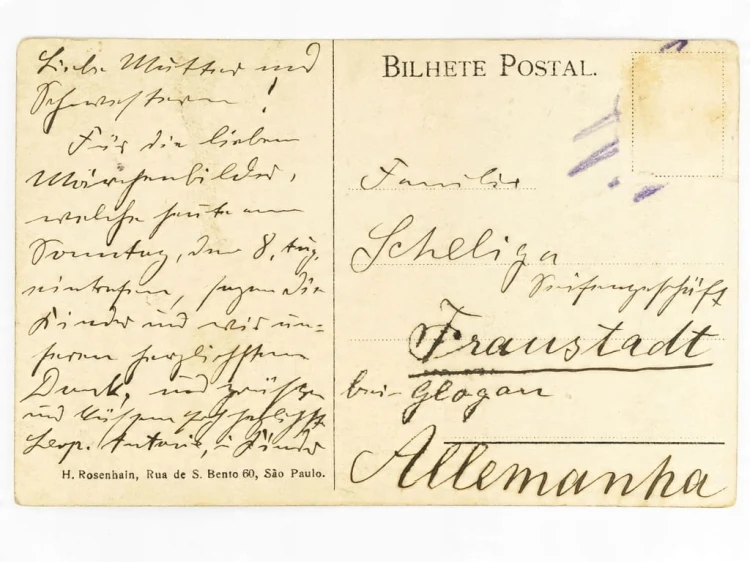 Liebe Mutter und
Schwestern!
Für die lieben
Märchenbilder,
welche heute am
Sonntag, den 8. Aug.
eintrafen, sagen die
Kinder und wir un=
seren herzlichsten
Dank, und grüßen
und küssen herzlichst
Leop. Antonie, u Kinder
H. Rosenhain, Rua de S. Bento 60, São Paulo.
BILHETE POSTAL.
Familie
Scheliga
Seifengeschäft
Fraustadt
bei Glogau
Allemanha